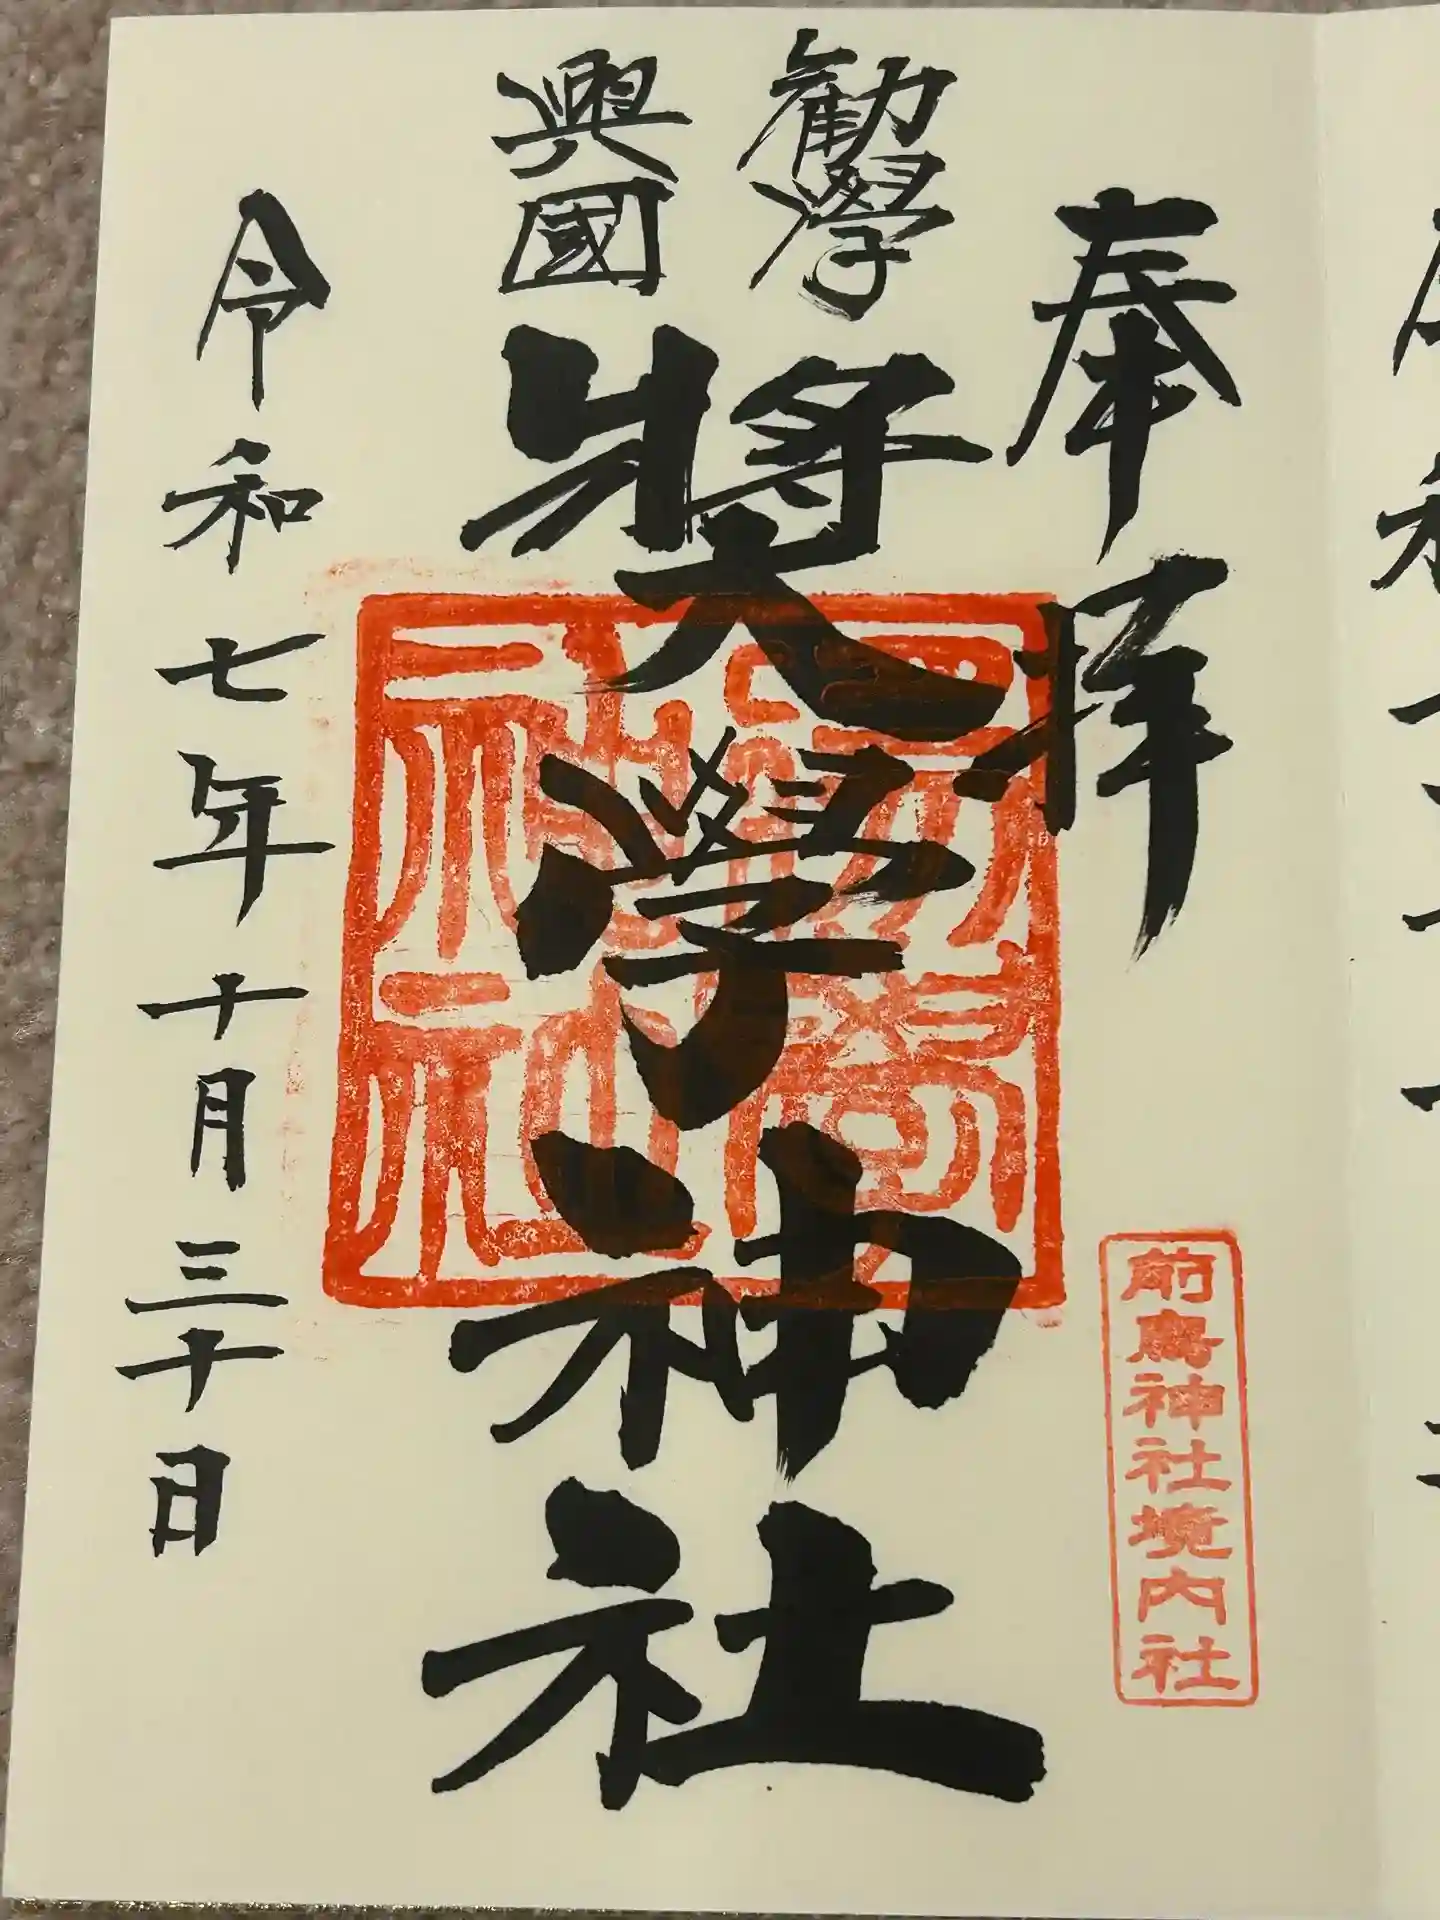 奉拝
勸學
興國
奨學神社
令和七年十月三十日
前鳥神社境内社